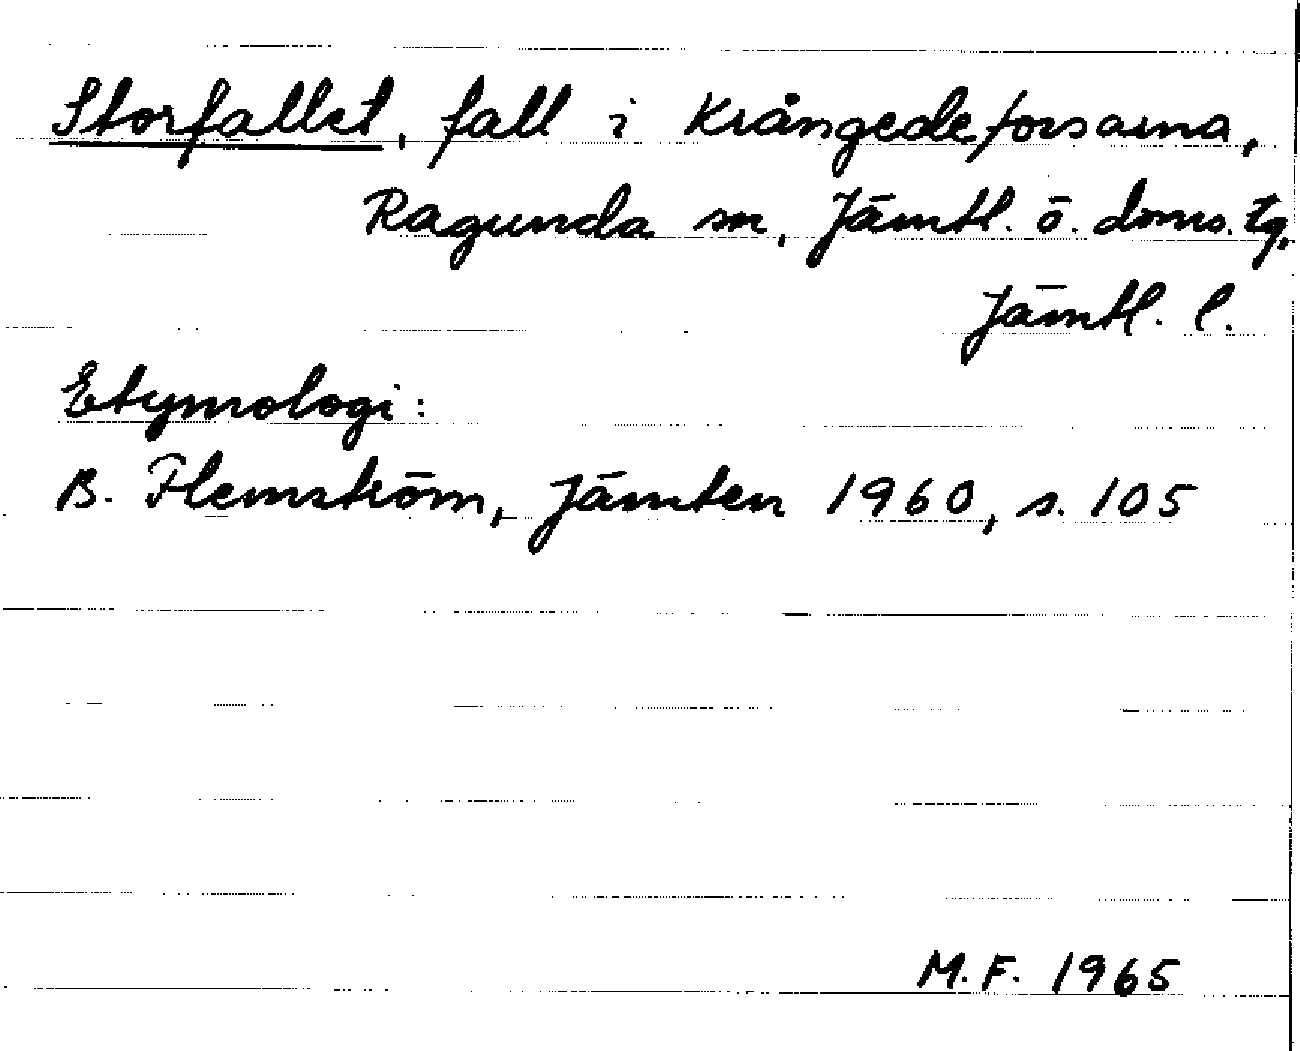 Storfallet, fall i Krångedeforsarna,
Ragunda sn, Jämtl. ö. doms. tg,
Jämtl. l.
Etymologi:
B. Flemström, Jämten 1960, s. 105
M.F. 1965